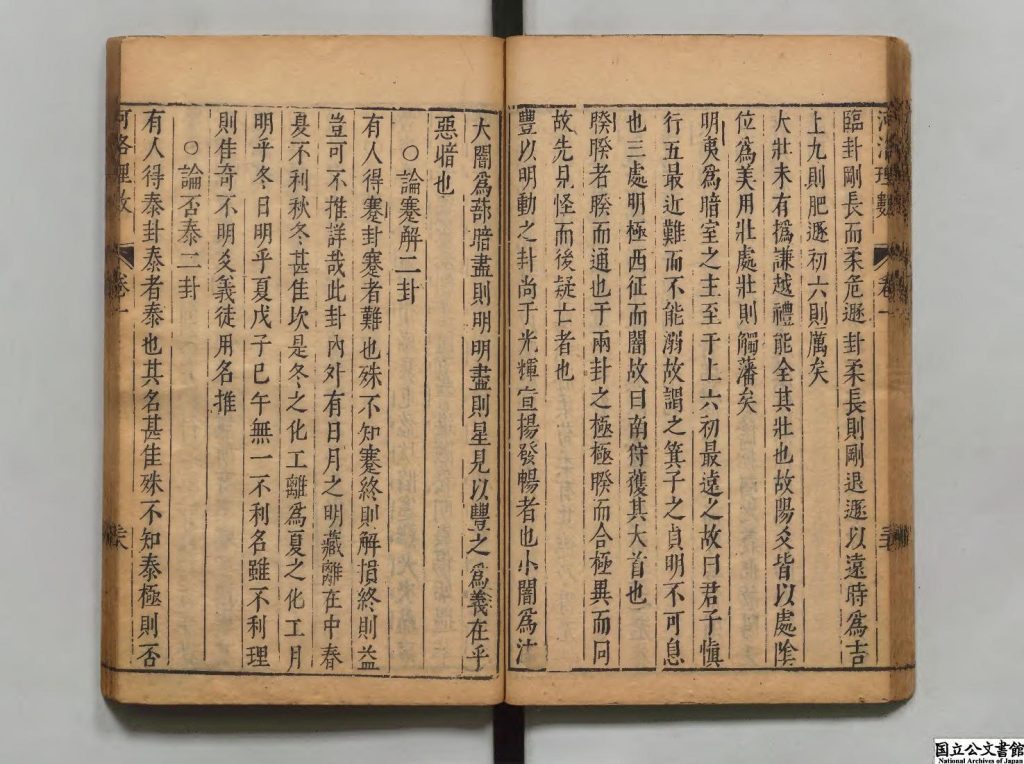 河洛理數 卷一
臨卦剛長而柔危遯卦柔長則剛退遯以遠時爲吉
上九則肥遯初六則厲矣
大壯未有撝謙越禮能全其壯也故陽爻皆以處陰
位爲美用壯處壯則觸藩矣
明夷爲暗室之主至于上六初最遠之故曰君子愼
行五最近難而不能溺故謂之箕子之貞明不可息
也三處明極西征而闇故曰南狩獲其大首也
睽睽者睽而通也于兩卦之極極睽而合極異而同
故先見怪而後疑亡者也
豐以明動之卦尚于光輝宣揚發暢者也小闇爲沛
大闇爲蔀暗盡則明明盡則星見以豐之爲義在乎
惡暗也
○論蹇解二卦
有人得蹇卦蹇者難也殊不知蹇終則解損終則益
豈可不推詳哉此卦內外有日月之明藏離在中春
憂不利秋冬甚佳坎是冬之化工離爲夏之化工月
明乎冬日明乎夏戊子巳午無一不利名雖不利理
則佳奇不明爻義徒用名推
○論否泰二卦
有人得泰卦泰者泰也其名甚佳殊不知泰極則否
河洛理數 卷一
国立公文書館
National Archives of Japan